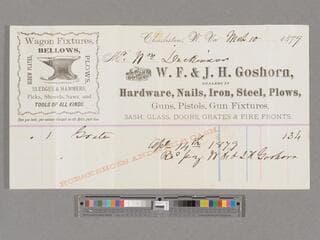 Wagon Fixtures,
BELLOWS,
SCREW PLATES,
PLOWS,
SLEDGES & HAMMERS,
Picks, Shovels, Saws, and
TOOLS OF ALL KINDS.
Charleston, W. Va. Mch 10 1879
Mr. Wm Dickinson
W. F. & J. H. Goshorn,
DEALERS IN
Hardware, Nails, Iron, Steel, Plows,
Guns, Pistols, Gun Fixtures,
SASH, GLASS, DOORS, GRATES & FIRE FRONTS.
HORSESHOES AND
1 Grate 1 34
1879
Rec pay W F & J H Goshorn